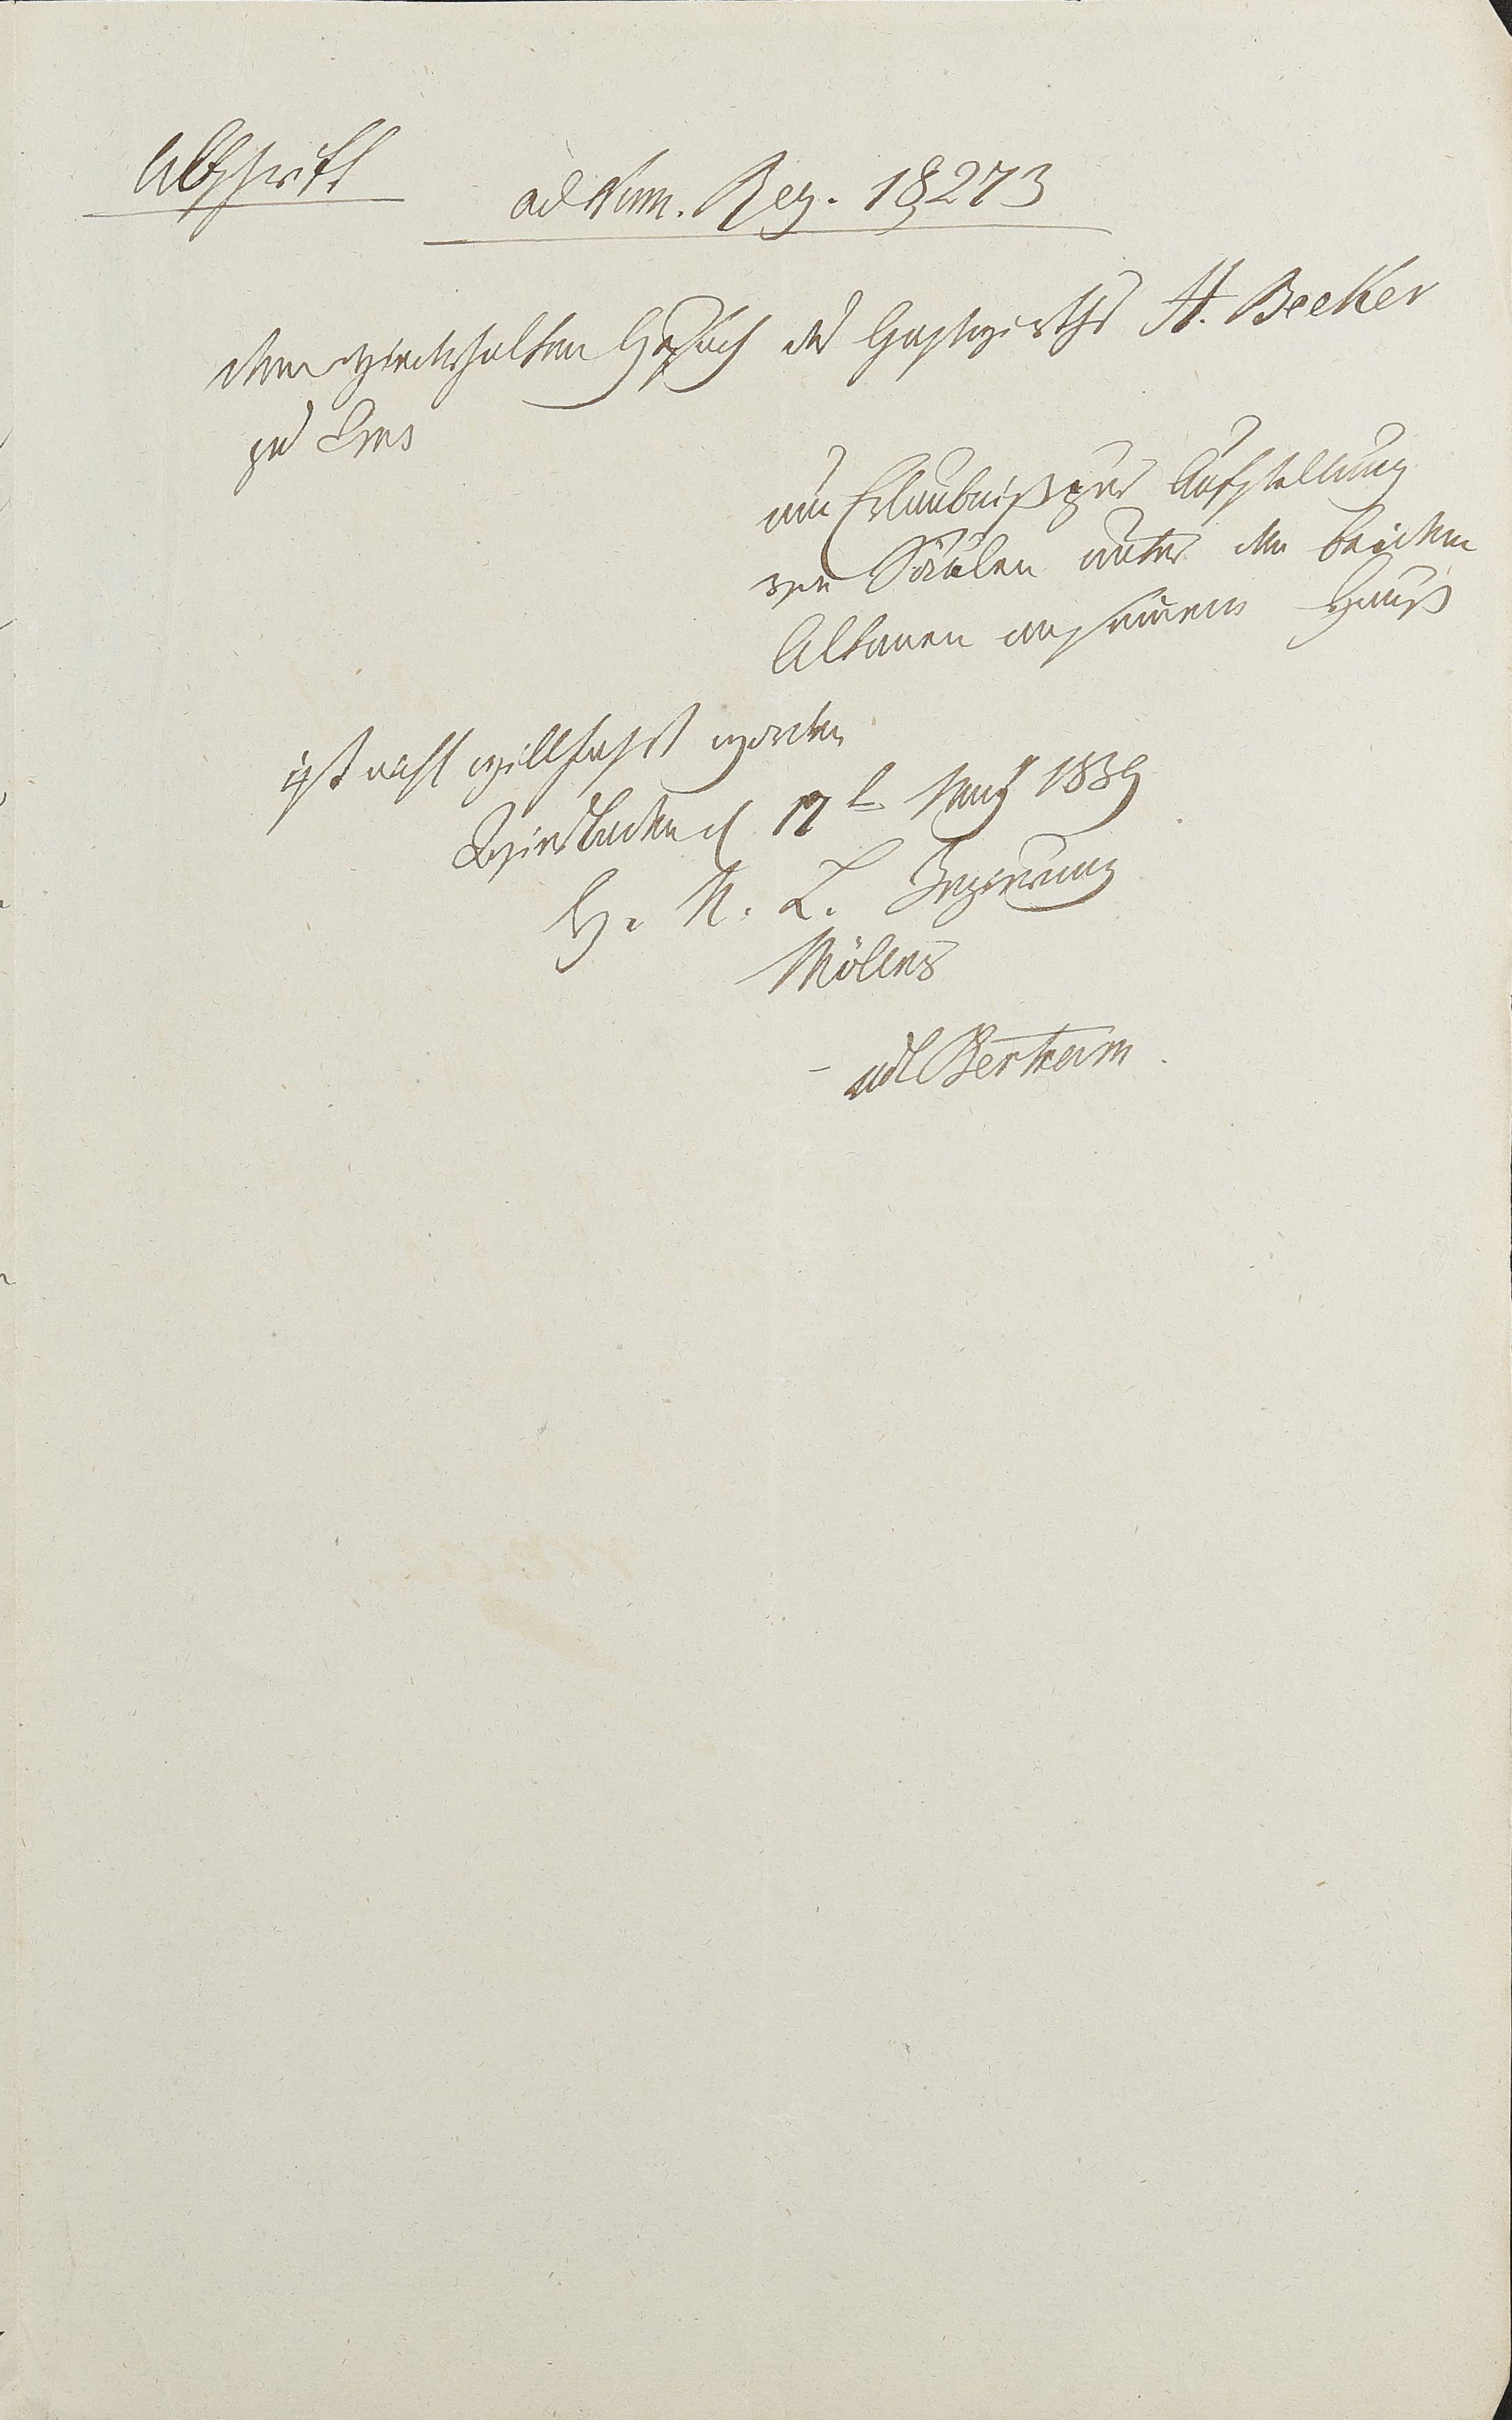 Abschrift
ad Num. Reg. 18,273
dem wiederholten Gesuch des Gastwirths H. Becker
zu Ems
um Erlaubniß zur Aufstellung
von Säulen unter den beiden
Altanen an seinem Hauß
ist nicht willfahrt worden
Wiesbaden d 17t May 1839
H. N. L. Regierung
Möller
vdt Bertram.